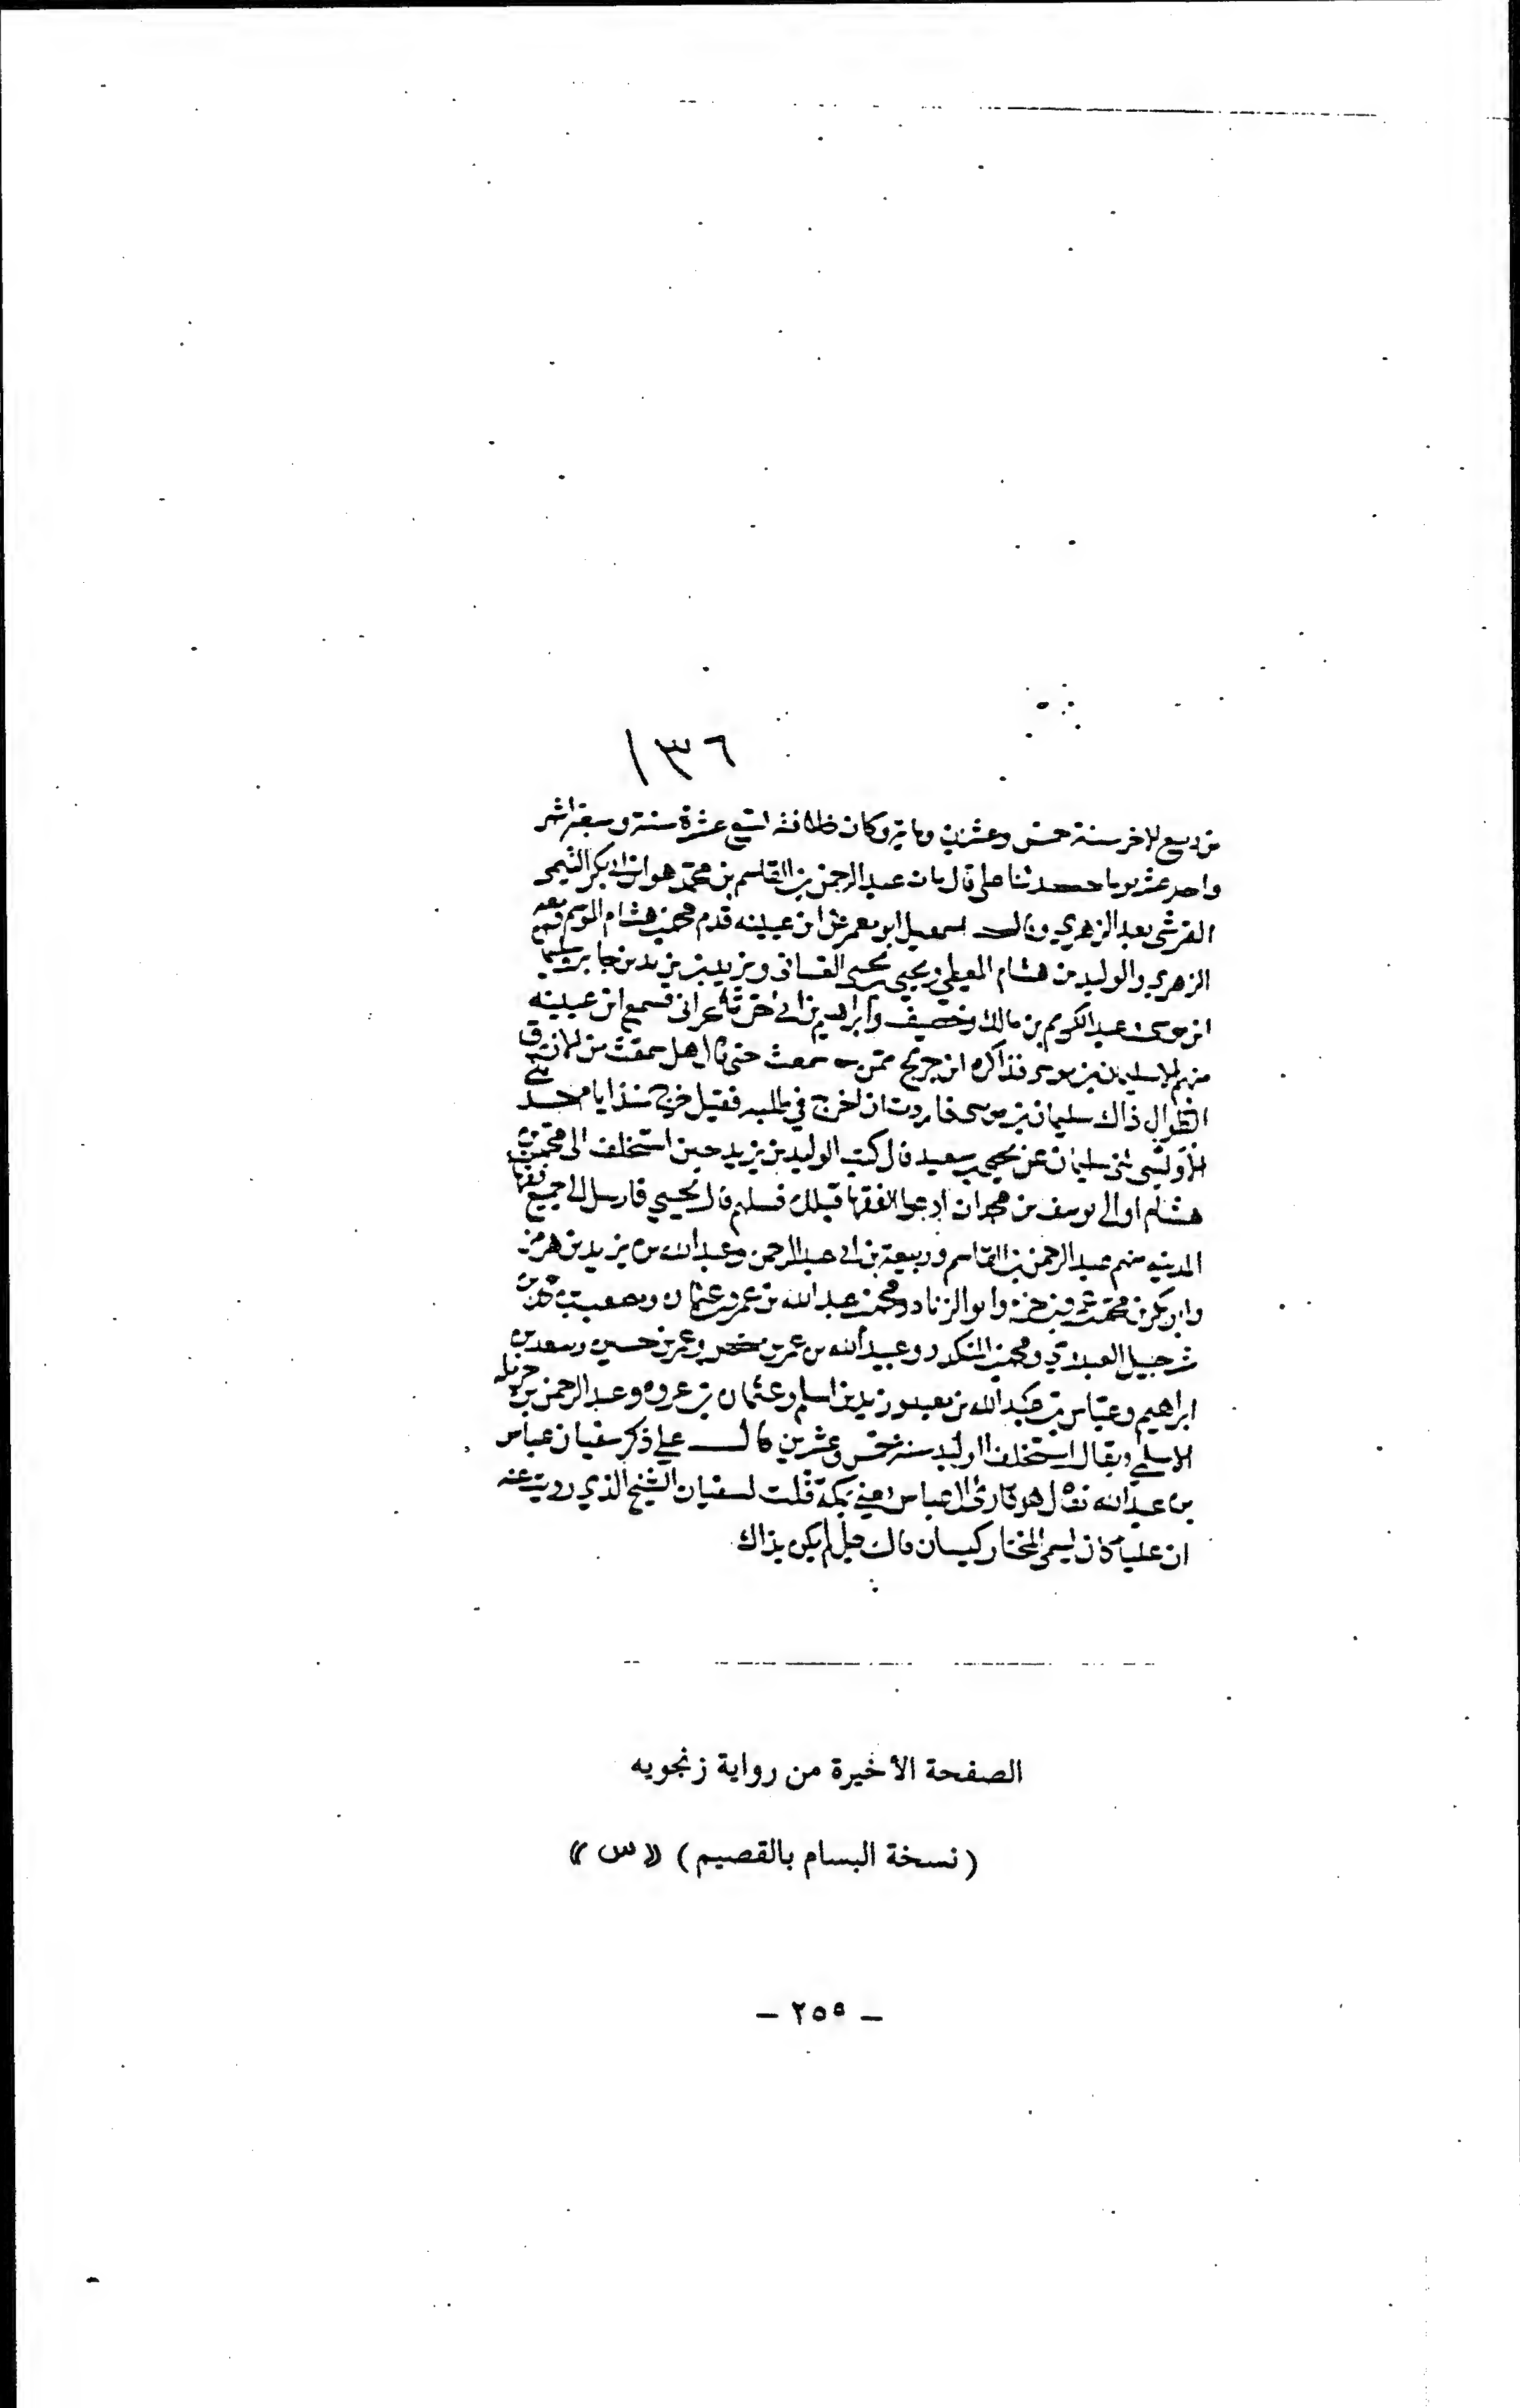 ١٣٦
من ربيع الاخر سنة خمس وعشرين وماية وكان خلافته تسع عشرة سنة وسبعة اشهر
واحد عشر يوما حدثنا علي قال مات عبد الرحمن بن القاسم بن محمد هو ابن ابي بكر التيمي
القرشي بعد الزهري وقال اسمعيل ابو معمر عن ابن عيينه قدم محمد بن هشام الموسم ومعه
الزهري والوليد بن هشام المعيطي ويحيى بن يحيى الغساني ويزيد بن يزيد بن جابر وسليمان
بن موسى وعبد الكريم بن مالك وخصيف وابراهيم بن ابي حرة فسمع ابن عيينه
منهم الا سليمان بن موسى فذاكره ابن جريج ممن سمعت حتى
الطوال ذاك سليمان بن موسى فاردت ان اخرج في طلبه فقيل خرج منذ ايام حدثني
الاويسي ثني سليمان عن يحيى بن سعيد قال كتب الوليد بن يزيد حين استخلف الى محمد بن
هشام او الى يوسف بن محمد ان ادعوا الفقها قبلك فسلهم قال يحيى فارسل الى جميع فقها
المدينه منهم عبد الرحمن بن القاسم وربيعة بن ابي عبد الرحمن وعبد الله بن يزيد بن هرمز
وابو بكر بن محمد بن عمرو بن حزم وابو الزناد ومحمد بن عبد الله بن عمرو بن عثمان ومصعب بن محمد بن
شرحبيل العبدري ومحمد بن المنكدر وعبيد الله بن عمر بن حفص وعمر بن حسين وسعد بن
ابراهيم وعباس بن عبد الله بن معبد وزيد بن اسلم وعثمان بن عروه وعبد الرحمن بن حرمله
الاسلمي ويقال استخلف الوليد سنة خمس وعشرين قال علي ذكر سفيان عباس
بن عبد الله فقال هو قارئ ال عباس يعني بمكة قلت لسفيان الشيخ الذي رويت عنه
ان عليا كان يسمى المختار كيسان قال لم يكن بذاك
الصفحة الأخيرة من رواية زنجويه
(نسخة البسام بالقصيم) «س»
– ٢٥٥ –